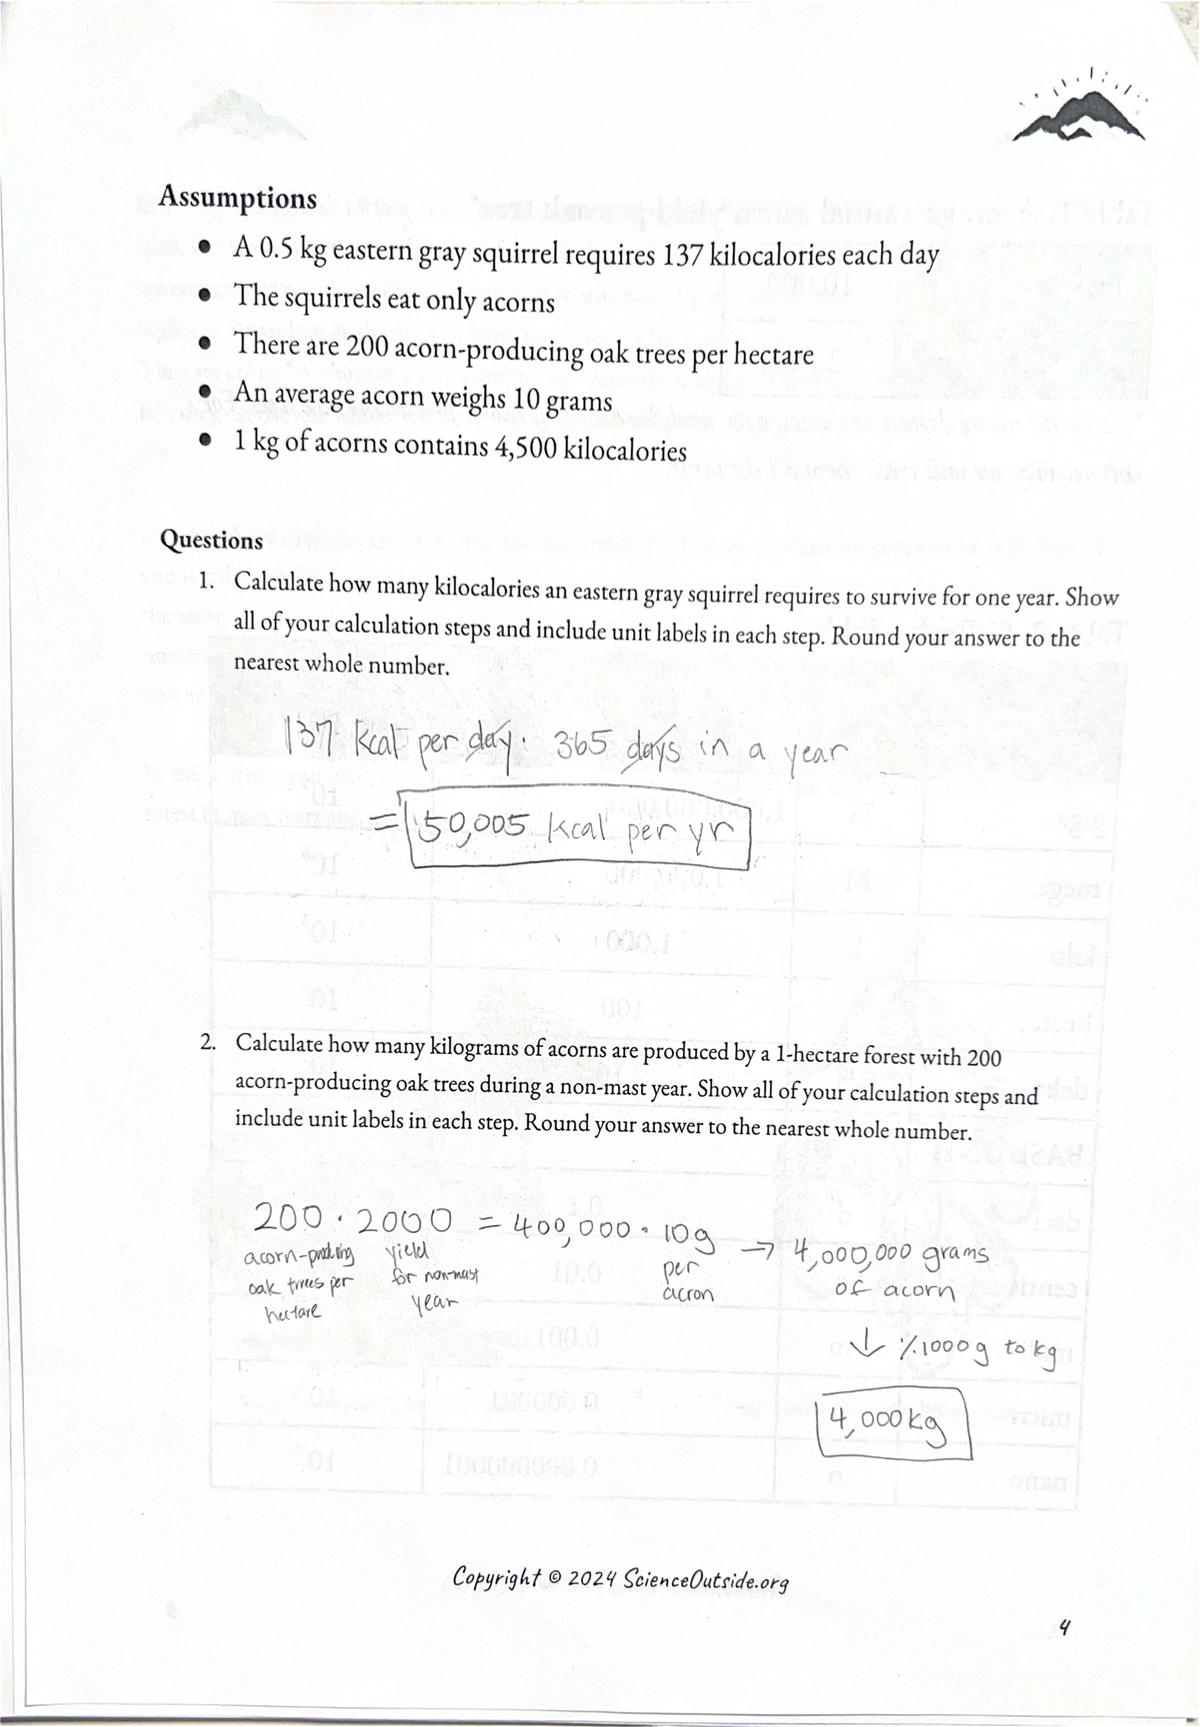 Assumptions
● A 0.5 kg eastern gray squirrel requires 137 kilocalories each day
● The squirrels eat only acorns
● There are 200 acorn-producing oak trees per hectare
● An average acorn weighs 10 grams
● 1 kg of acorns contains 4,500 kilocalories
Questions
1. Calculate how many kilocalories an eastern gray squirrel requires to survive for one year. Show
all of your calculation steps and include unit labels in each step. Round your answer to the
nearest whole number.
137 kcal per day · 365 days in a year
= 50,005 kcal per yr
2. Calculate how many kilograms of acorns are produced by a 1-hectare forest with 200
acorn-producing oak trees during a non-mast year. Show all of your calculation steps and
include unit labels in each step. Round your answer to the nearest whole number.
200 · 2000 = 400,000 · 10g → 4,000,000 grams
acorn-producing yield per of acorn
oak trees per for non-mast acron
hectare year
↓ % 1000g to kg
4,000kg
Copyright © 2024 ScienceOutside.org
4